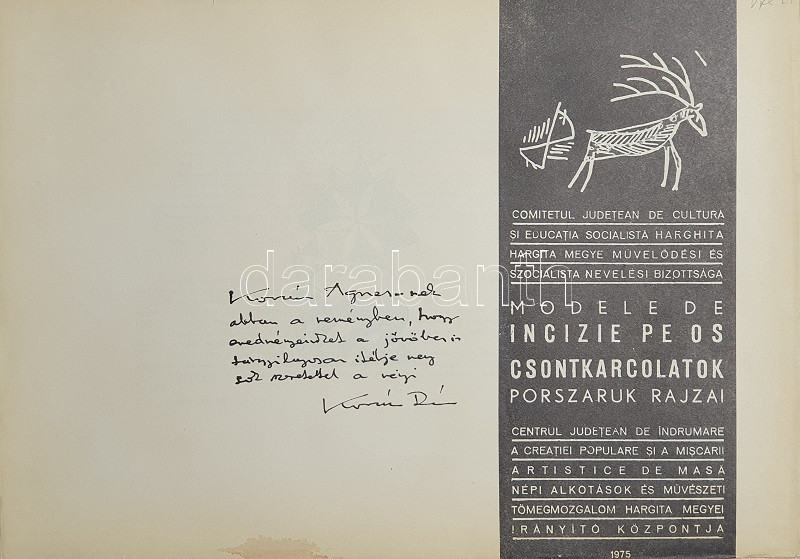 Kosán Ágnesnek
abban a reményben, hogy
eredményeinket a jövőben is
tárgyilagosan ítélje meg
sok szeretettel a régi
COMITETUL JUDEȚEAN DE CULTURA
ȘI EDUCAȚIA SOCIALISTĂ HARGHITA
HARGITA MEGYE MŰVELŐDÉSI ÉS
SZOCIALISTA NEVELÉSI BIZOTTSÁGA
MODELE DE
INCIZIE PE OS
CSONTKARCOLATOK
PORSZARUK RAJZAI
CENTRUL JUDEȚEAN DE ÎNDRUMARE
A CREAȚIEI POPULARE ȘI A MIȘCARII
ARTISTICE DE MASĂ
NÉPI ALKOTÁSOK ÉS MŰVÉSZETI
TÖMEGMOZGALOM HARGITA MEGYEI
IRÁNYÍTÓ KÖZPONTJA
1975
darabanth